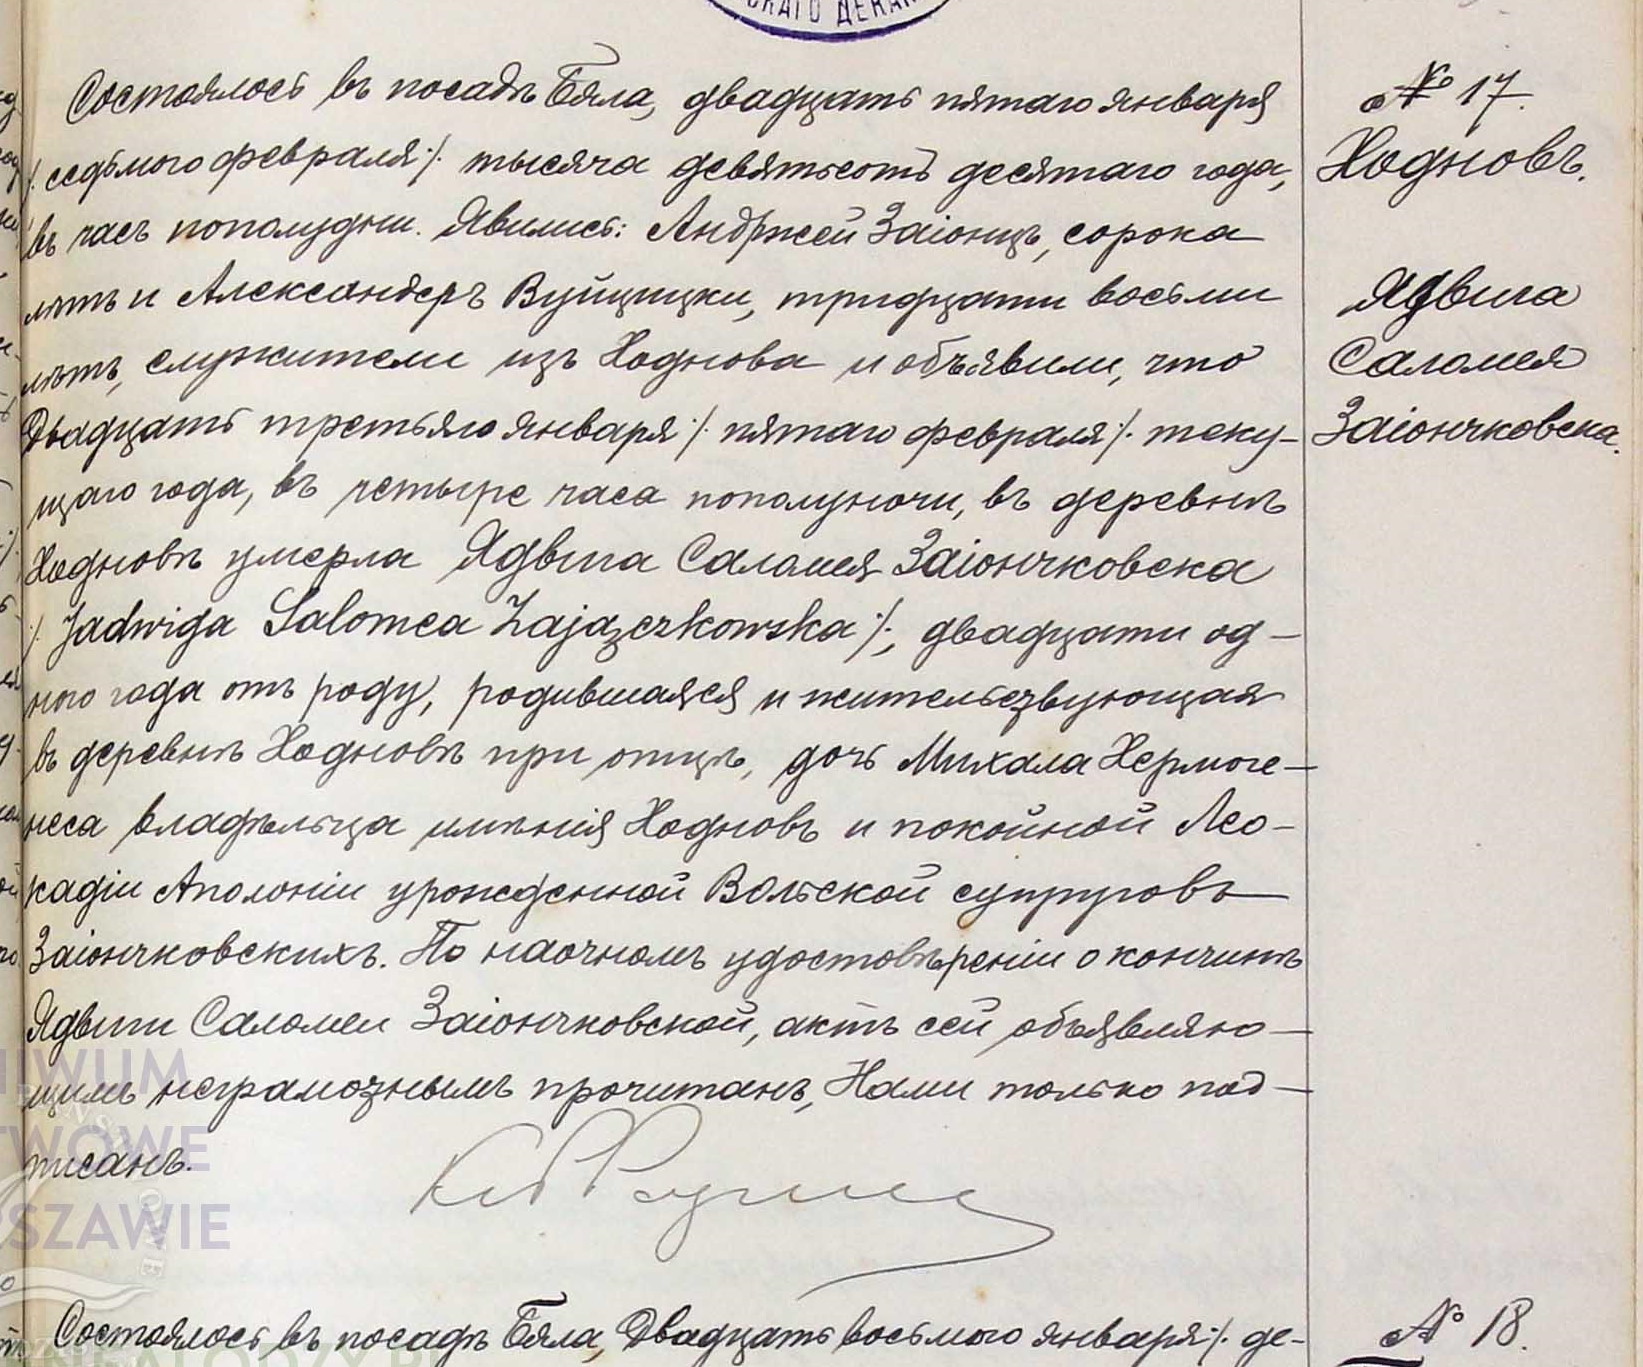 СКАГО ДЕКАН
Состоялось въ посадѣ Бяла, двадцать пятаго января
№ 17.
/. седьмого февраля ./. тысяча девятьсотъ десятаго года,
Ходновъ.
въ часъ пополудни. Явились: Андржей Заіонцъ, сорока
лѣтъ и Александеръ Вуйцицки, тридцати восьми
Ядвига
лѣтъ, служители изъ Ходнова и объявили, что
Саломея
Двадцать третьяго января ./. пятаго февраля ./. теку-
Заіончковска.
щаго года, въ четыре часа пополуночи, въ деревнѣ
Ходновѣ умерла Ядвига Саломея Заіончковска
/. Jadwiga Salomea Zajązczkowska ./., двадцати од-
ного года отъ роду, родившаяся и жительствующая
въ деревнѣ Ходновѣ при отцѣ, дочь Михала Хермоге-
неса владѣльца имѣнія Ходновъ и покойной Лео-
кадіи Аполоніи урожденной Вольской супруговъ
Заіончковскихъ. По наочномъ удостовѣреніи о кончинѣ
Ядвиги Саломеи Заіончковской, актъ сей объявляю-
щимъ неграмотнымъ прочитанъ, Нами только под-
писанъ.
Состоялось въ посадѣ Бяла, Двадцать восьмого января ./. де-
№ 18.